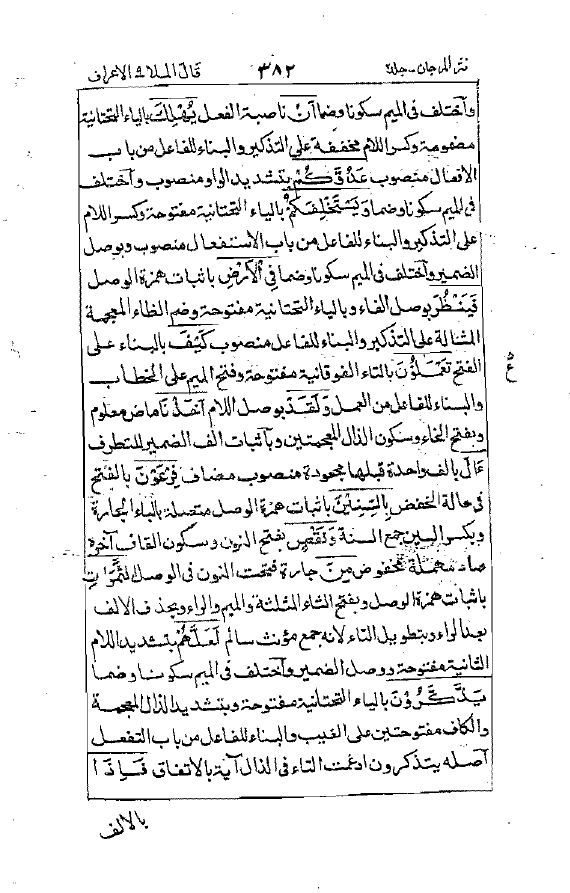 نثر المرجان - جلد٢ ٣٨٢ قال الملا ٩ الاعراف
واختلف فى الميم سكونا وضما اَنْ ناصبة الفعل يُهْلِكَ بالياء التحتانية
مضمومة وكسر اللام مخففة على التذكير والبناء للفاعل من باب
الافعال منصوب عَدُوَّكُمْ بتشديد الواو منصوب واختلف
فى الميم سكونا وضما وَيَسْتَخْلِفَكُمْ بالياء التحتانية مفتوحة وكسر اللام
على التذكير والبناء للفاعل من باب الاستفعال منصوب وبوصل
الضمير واختلف فى الميم سكونا وضما فِى الْاَرْضِ باثبات همزة الوصل
فَيَنْظُرَ بوصل الفاء وبالياء التحتانية مفتوحة وضم الظاء المعجمة
المشالة على التذكير والبناء للفاعل منصوب كَيْفَ بالبناء على
الفتح تَعْمَلُوْنَ بالتاء الفوقانية مفتوحة وفتح الميم على الخطاب
ع
والبناء للفاعل من العمل وَلَقَدْ بوصل اللام اَخَذْنَا ماض معلوم
وبفتح الخاء وسكون الذال المعجمتين وباثبات الف الضمير للتطرف
اٰلَ بالف واحدة قبلها مجعودة منصوب مضاف فِرْعَوْنَ بالفتح
فى حالة الخفض بِالسِّنِيْنَ باثبات همزة الوصل متصلة بالباء الجارة
وبكسر السين جمع السنة وَنَقْصٍ بفتح النون وسكون القاف آخره
صاد مهملة مخفوض مِنَ جارة فتحت النون فى الوصل الثَّمَرٰتِ
باثبات همزة الوصل وبفتح الثاء المثلثة والميم والراء وبحذف الالف
بعد الراء وبتطويل التاء لانه جمع مؤنث سالم لَعَلَّهُمْ بتشديد اللام
الثانية مفتوحة ووصل الضمير واختلف فى الميم سكونا وضما
يَذَّكَّرُوْنَ بالياء التحتانية مفتوحة وبتشديد الذال المعجمة
والكاف مفتوحتين على الغيب والبناء للفاعل من باب التفعل
اصله يتذكرون ادغمت التاء فى الذال آية بالاتفاق فَاِذَا
بالالف